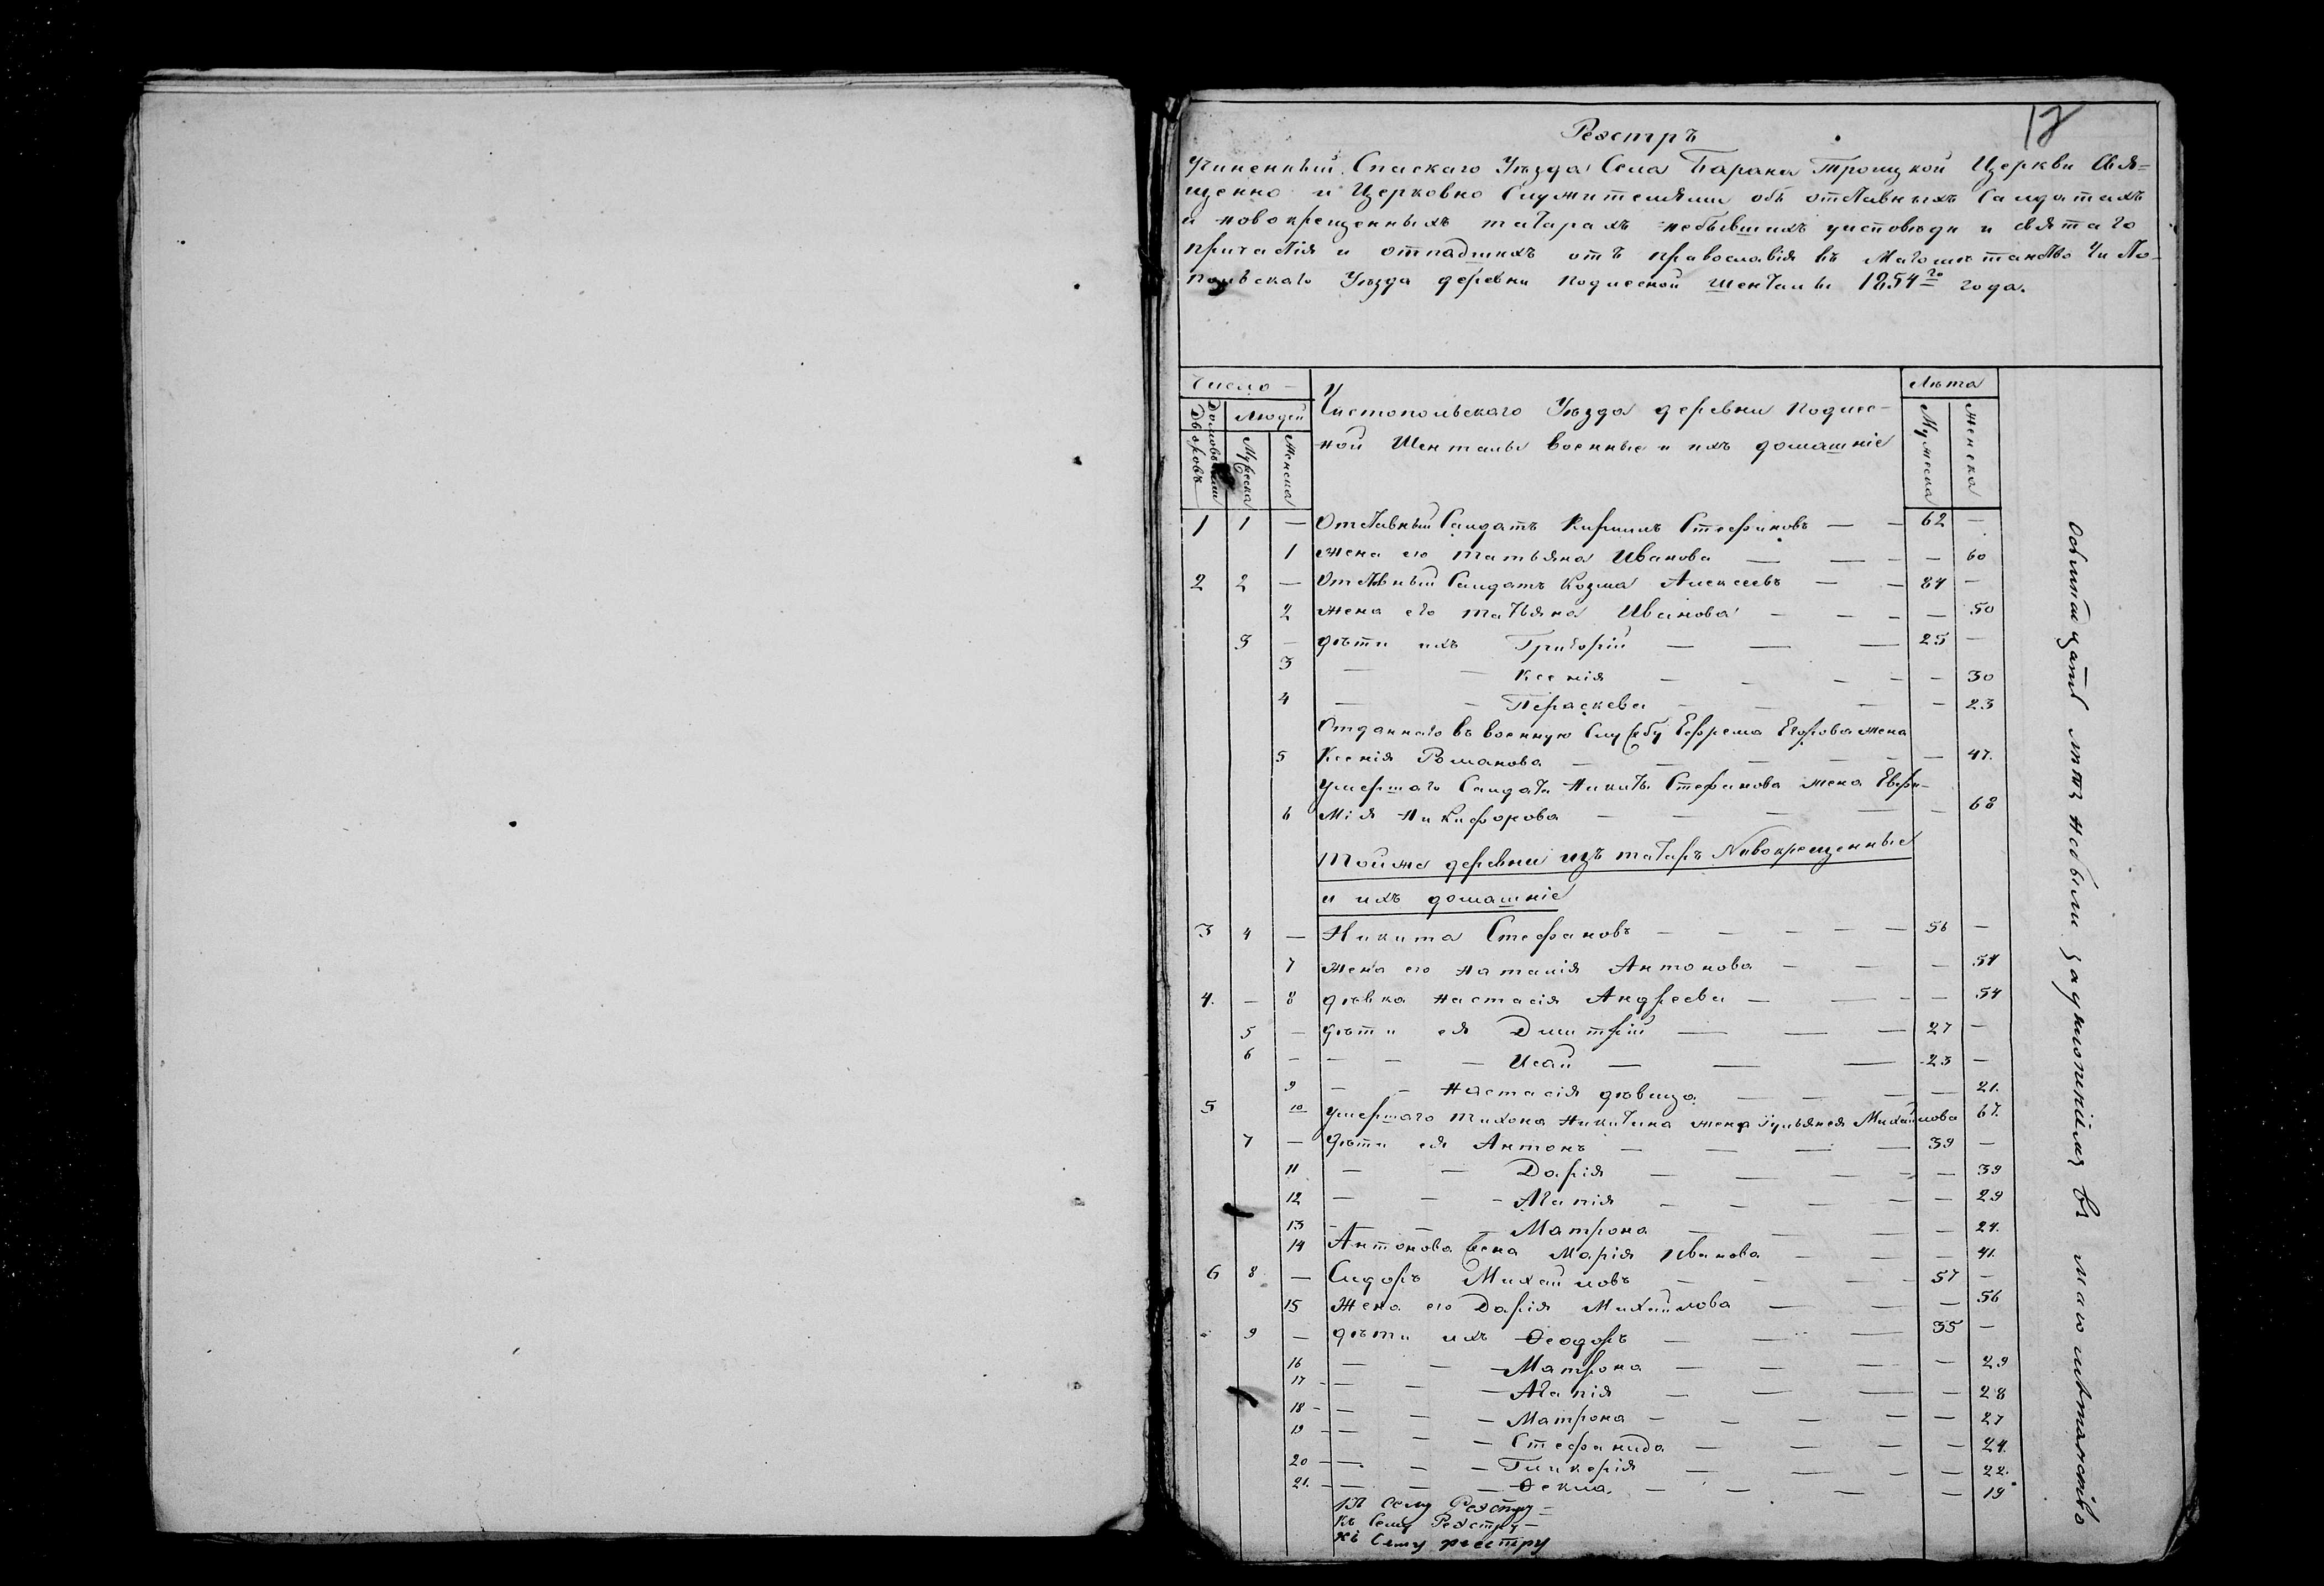 12
Реэстръ
Учиненный Спаскаго Уѣзда Села Барана Троицкой Церкви Свя-
щенно и Церковно Служителями объ отставныхъ Салдатахъ
и новокрещенныхъ татарахъ небывшихъ у исповѣди и святаго
причастія и отпадшихъ отъ православія въ Магометанство Чисто-
польскаго Уѣзда деревни Подлесной Шенталы 1854го года.
Число
Лѣта
Домовъ или Дворовъ
Людей
Мужеска
Женска
Чистопольскаго Уѣзда деревни Подлес-
ной Шенталы военные и ихъ домашніе
Мужеска
Женска
1 1 — Отставный Салдатъ Кириллъ Стефановъ — — 62 —
1 жена его Татьяна Иванова — — — — 60
2 2 — Отставный Салдатъ Козма Алексеевъ — — 84 —
2 жена его Татьяна Иванова — — — — 50
3 — дѣти ихъ Григорій — — — 25 —
3 — — Ксенія — — — — — 30
4 — — Параскева — — — — 23
Отданнаго въ военную Службу Ефрема Егорова жена
5 Ксенія Романова — — — — — 47.
умершаго Салдата Никиты Стефанова жена Евфи-
6 мія Никифорова — — — — — 68
Тойже деревни изъ татаръ Новокрещенные
и ихъ домашніе
3 4 — Никита Стефановъ — — — — — 56 —
7 жена его Наталія Антонова — — — 54
4. — 8 дѣвка Настасія Андреева — — — — 54
5 — дѣти ея Дмитрій — — — 27 —
6 — — — — Исай — — — 23 —
9 — — Настасія дѣвица — — — — 21.
5 10 умершаго Тихона Никитина жена Іульянея Михайлова 67.
7 — дѣти ея Антонъ — — — — 39 —
11 — — Дарія — — — — — 39
12 — — — Агапія — — — — — 29
13 — — — — Матрона — — — — 24.
14 Антонова жена Марія Иванова — — — 41.
6 8 — Сидоръ Михайловъ — — — — 57 —
15 Жена его Дарія Михайлова — — — 56
9 — дѣти ихъ Ѳеодоръ — — — 35 —
16 — — — Матрона — — — — 29
17 — — — Агапія — — — — 28
18 — — — Матрона — — — — — 27
19 — — — Стефанида — — — — 24.
20 — — — Гликерія — — — — 22.
21. — — — Ѳекла. — — — — 19
Къ Сему Реэстру —
Къ Сему Реэстру —
Къ Сему реестру
лѣтъ небыли въ магометанство